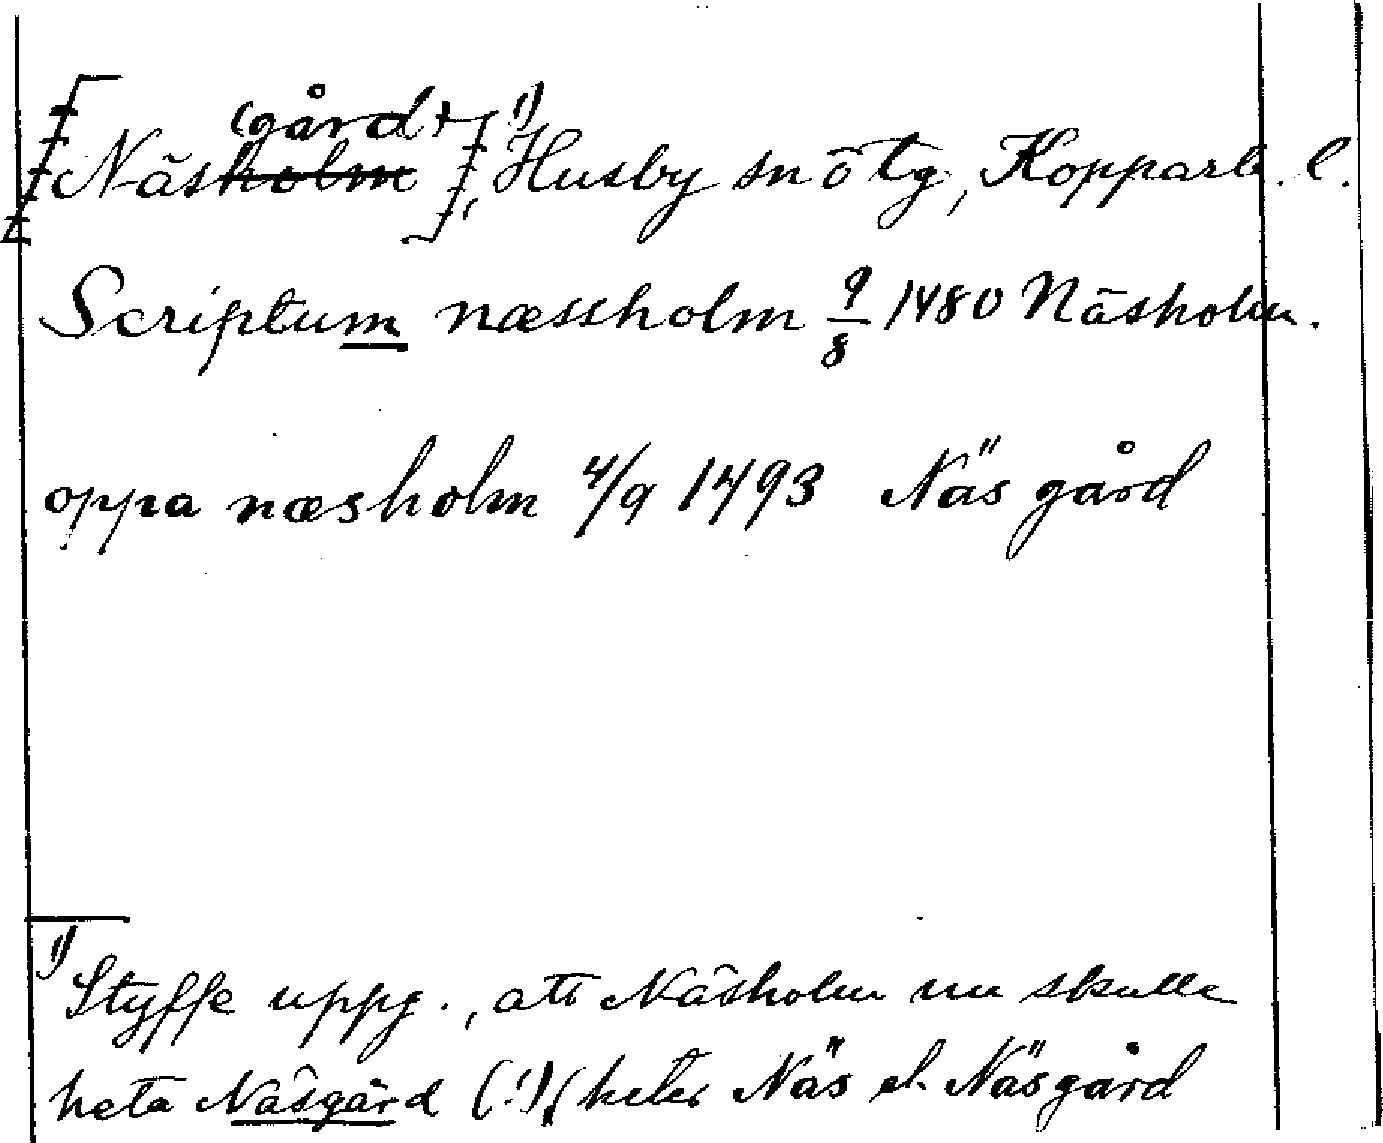 (gård) 1)
Näsholm, Husby sn o tg, Kopparb. l.
Scriptum næssholm 9/8 1480 Näsholm.
oppa næsholm 4/9 1493 Näs gård
1) Styffe uppg., att Näsholm nu skulle
heta Näsgård (!) (heter Näs el. Näsgård